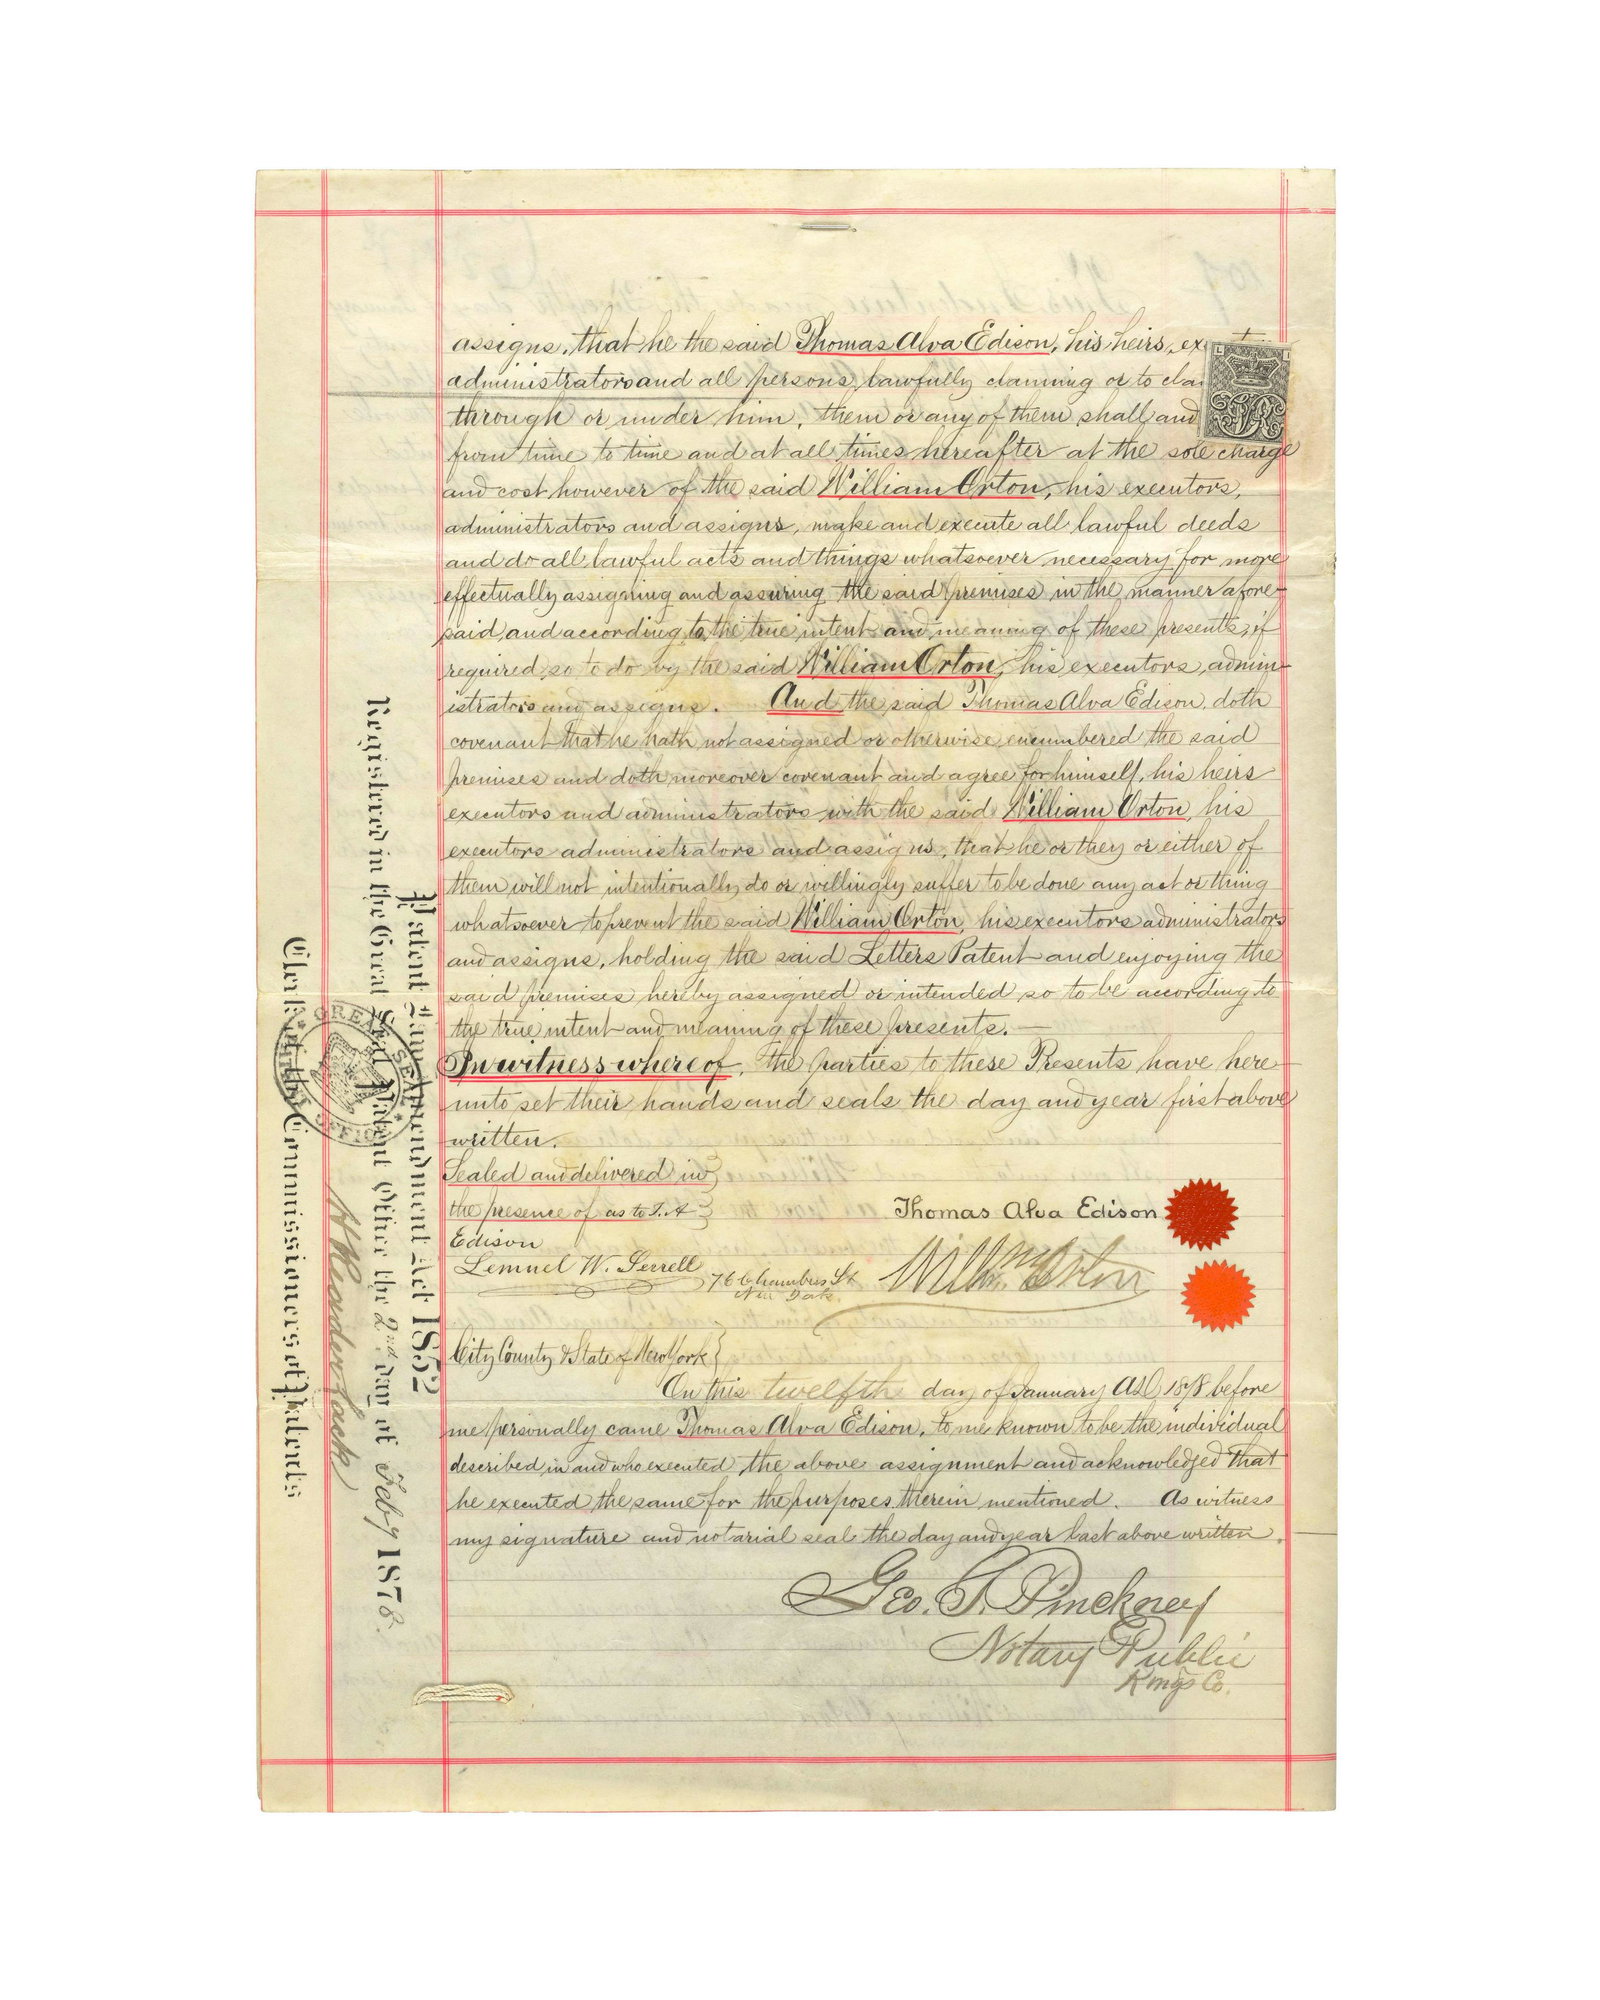 assigns, that he the said Thomas Alva Edison, his heirs,
administrators and all persons lawfully claiming or to
through or under him, them or any of them shall and
from time to time and at all times hereafter at the sole charge
and cost however of the said William Orton, his executors,
administrators and assigns, make and execute all lawful deeds
and do all lawful acts and things whatsoever necessary for more
effectually assigning and assuring the said premises in the manner afore-
said, and according to the true intent and meaning of these presents, if
required so to do by the said William Orton, his executors, admin-
istrators and assigns. And the said Thomas Alva Edison, doth
covenant that he hath not assigned or otherwise encumbered the said
premises and doth moreover covenant and agree for himself, his heirs
executors and administrators with the said William Orton, his
executors administrators and assigns, that he or they or either of
them will not intentionally do or willingly suffer to be done any act or thing
whatsoever to prevent the said William Orton, his executors administrators
and assigns, holding the said Letters Patent and enjoying the
said premises hereby assigned or intended so to be according to
the true intent and meaning of these presents.—
In witness whereof, the parties to these Presents have here-
unto set their hands and seals the day and year first above
written.
Sealed and delivered in
the presence of as to T. A
Edison
Thomas Alva Edison
Lemuel W. Serrell
76 Chambers St
New York
Wm Orton
City County & State of New York
On this twelfth day of January A.D. 1878 before
me personally came Thomas Alva Edison, to me known to be the individual
described in and who executed the above assignment and acknowledged that
he executed the same for the purposes therein mentioned. As witness
my signature and notarial seal the day and year last above written.
Geo. T. Pinckney
Notary Public
Kings Co.
Patent Law Amendment Act 1852
Registered in the Great Seal Patent Office the 2nd day of Feby 1878.
Clerk of the Commissioners of Patents
GREAT SEAL
OFFICE